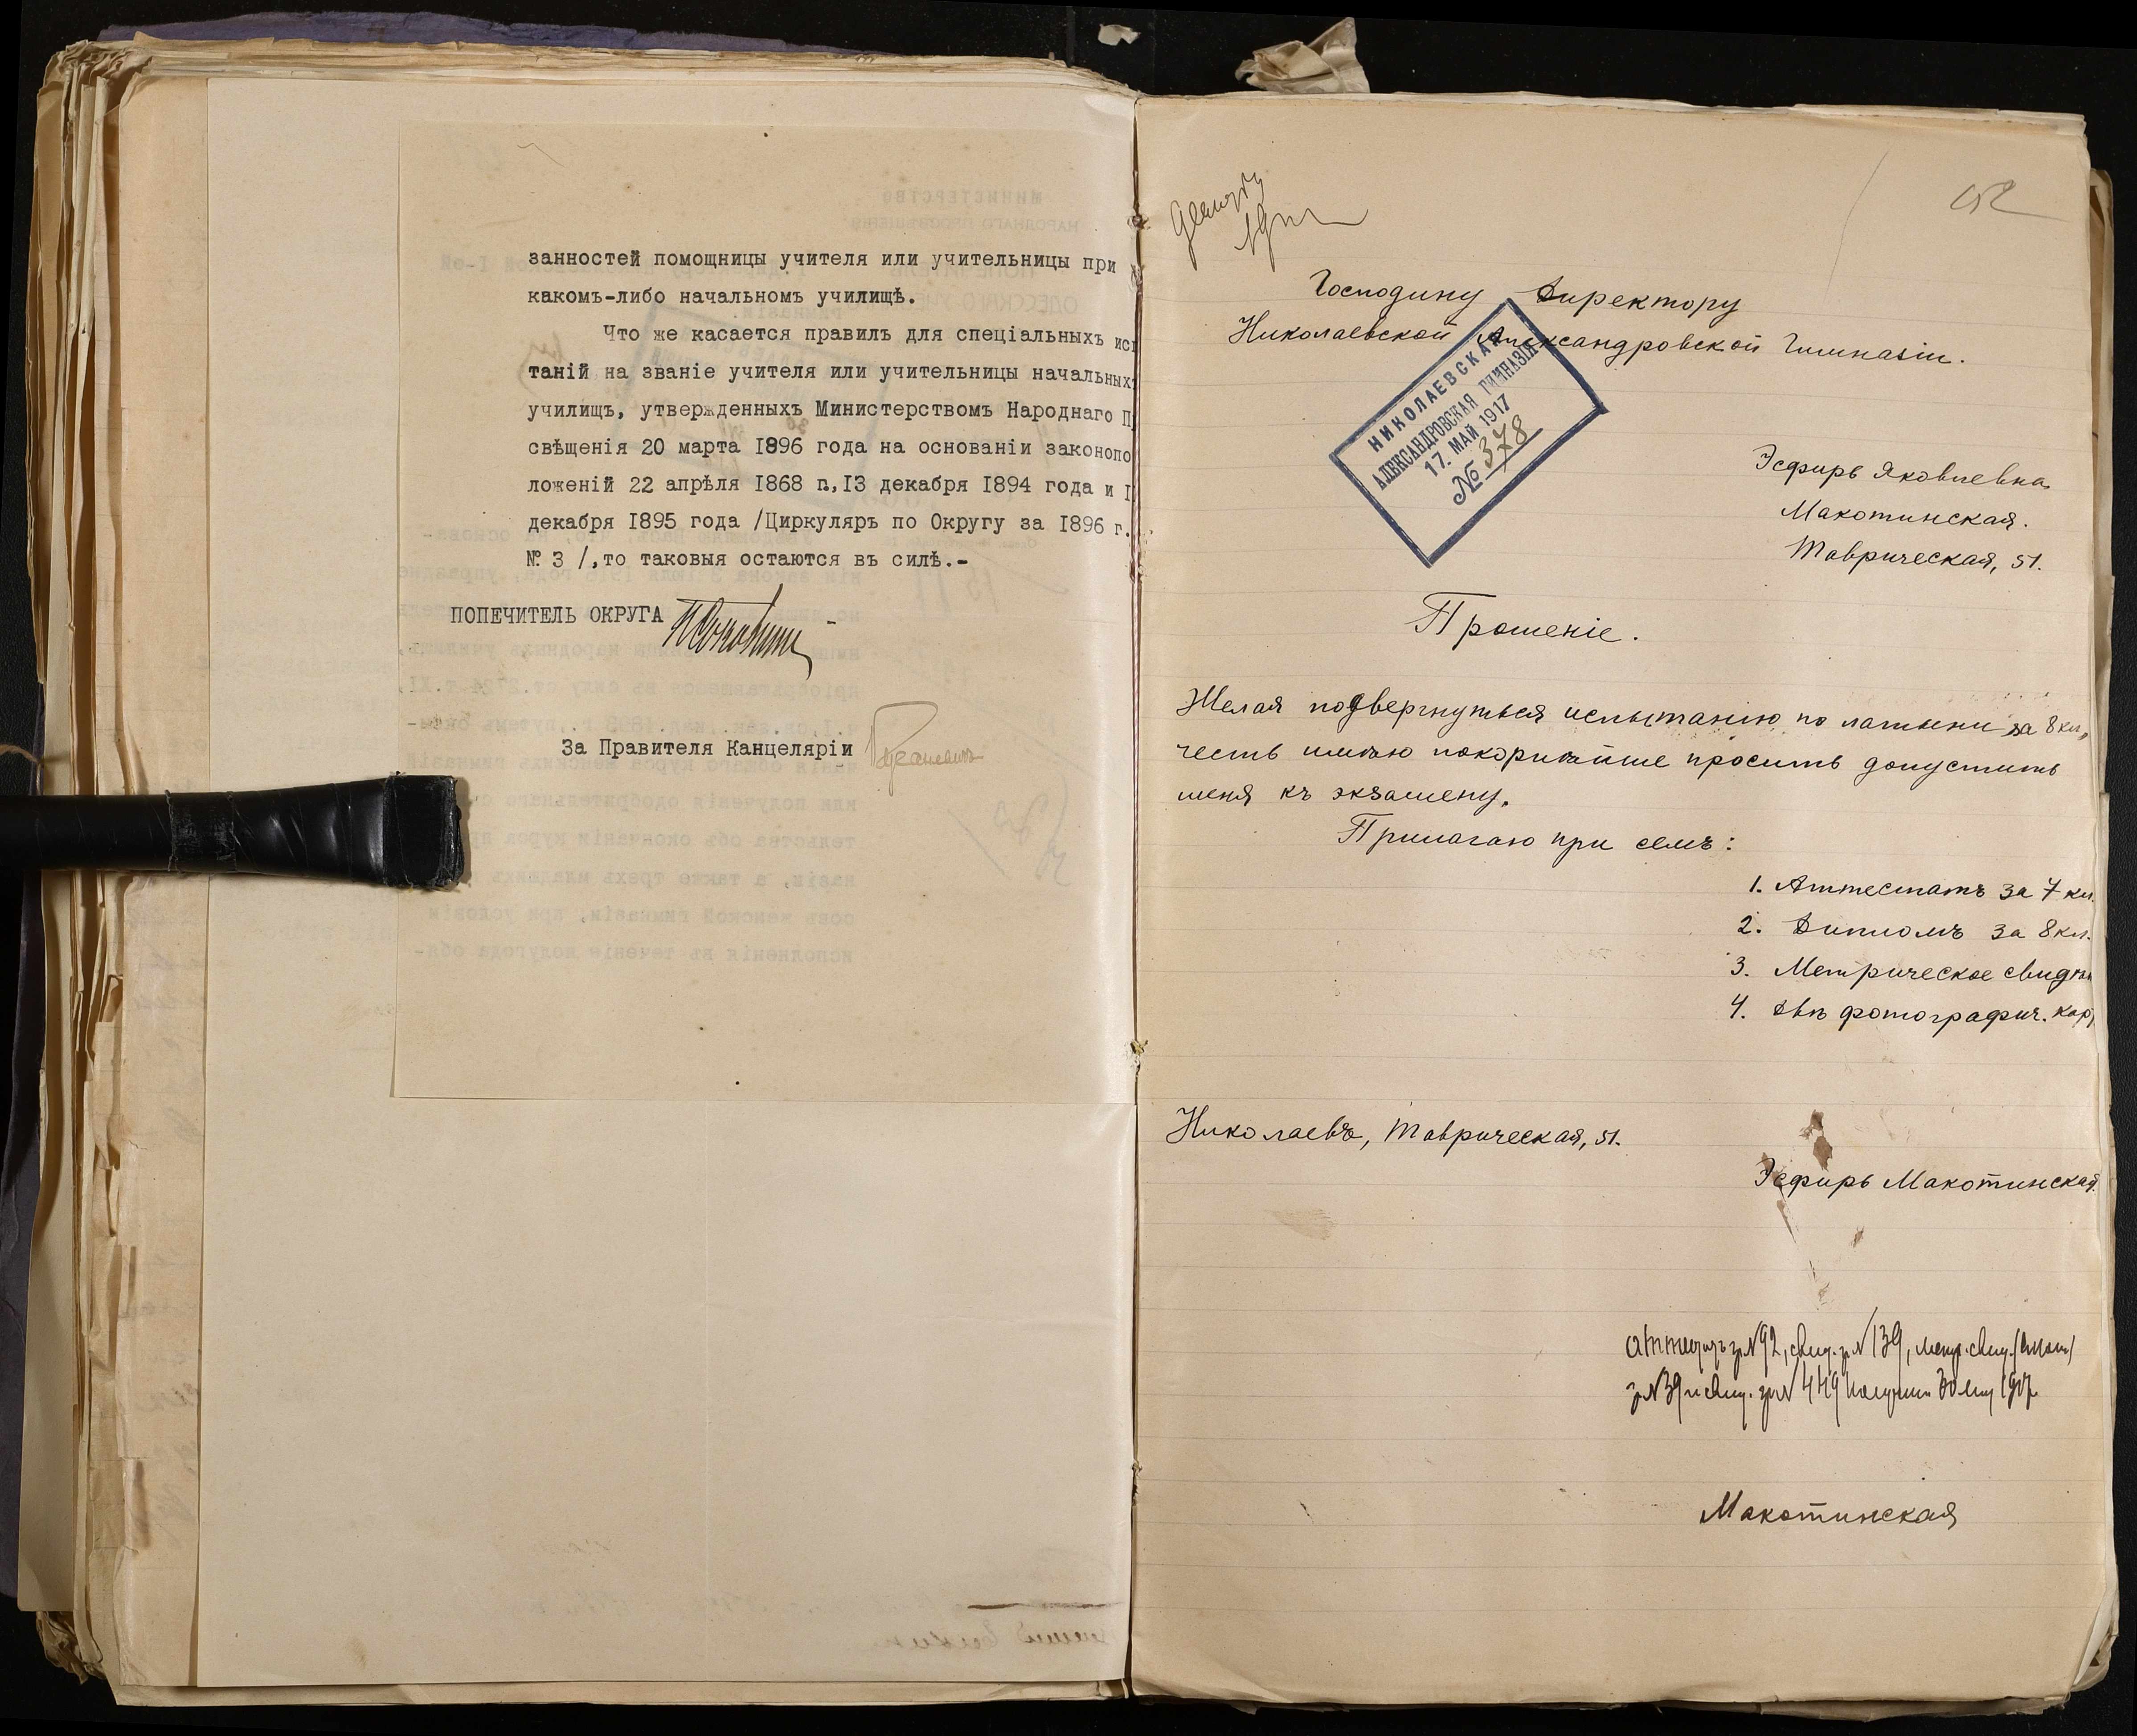 занностей помощницы учителя или учительницы при
какомъ-либо начальномъ училищѣ.
Что же касается правилъ для спеціальныхъ исп
таній на званіе учителя или учительницы начальныхъ
училищъ, утвержденныхъ Министерствомъ Народнаго П
свѣщенія 20 марта I896 года на основаніи законопо
ложеній 22 апрѣля I868 г., I3 декабря I894 года и I
декабря I895 года /Циркуляръ по Округу за I896 г.
№ 3 /, то таковыя остаются въ силѣ.-
ПОПЕЧИТЕЛЬ ОКРУГА
За Правителя Канцеляріи
Господину Директору
Николаевской Александровской Гимназіи.
НИКОЛАЕВСКАЯ
АЛЕКСАНДРОВСКАЯ ГИМНАЗІЯ
17. МАЙ 1917
№ 378
Эсфирь Яковлевна
Макотинская.
Таврическая, 51.
Прошеніе.
Желая подвергнуться испытанію по латыни за 8 кл.,
честь имѣю покорнѣйше просить допустить
меня къ экзамену.
Прилагаю при семъ:
1. Аттестатъ за 7 кл.
2. Дипломъ за 8 кл.
3. Метрическое свидѣт
4. Двѣ фотографич. кар
Николаевъ, Таврическая, 51.
Эсфирь Макотинская.
Аттестатъ за № 92, свид. за № 139, метр. свид.
за № 39 и свид. за № 449 получила 30 мая 1917
Макотинская